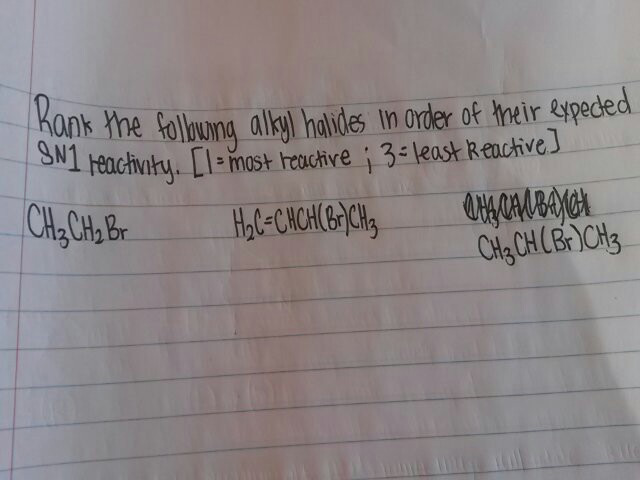 Rank the following alkyl halides in order of their expected
SN1 reactivity. [1=most reactive ; 3=least Reactive]
CH₃CH₂Br H₂C=CHCH(Br)CH₃
CH₃CH(Br)CH₃